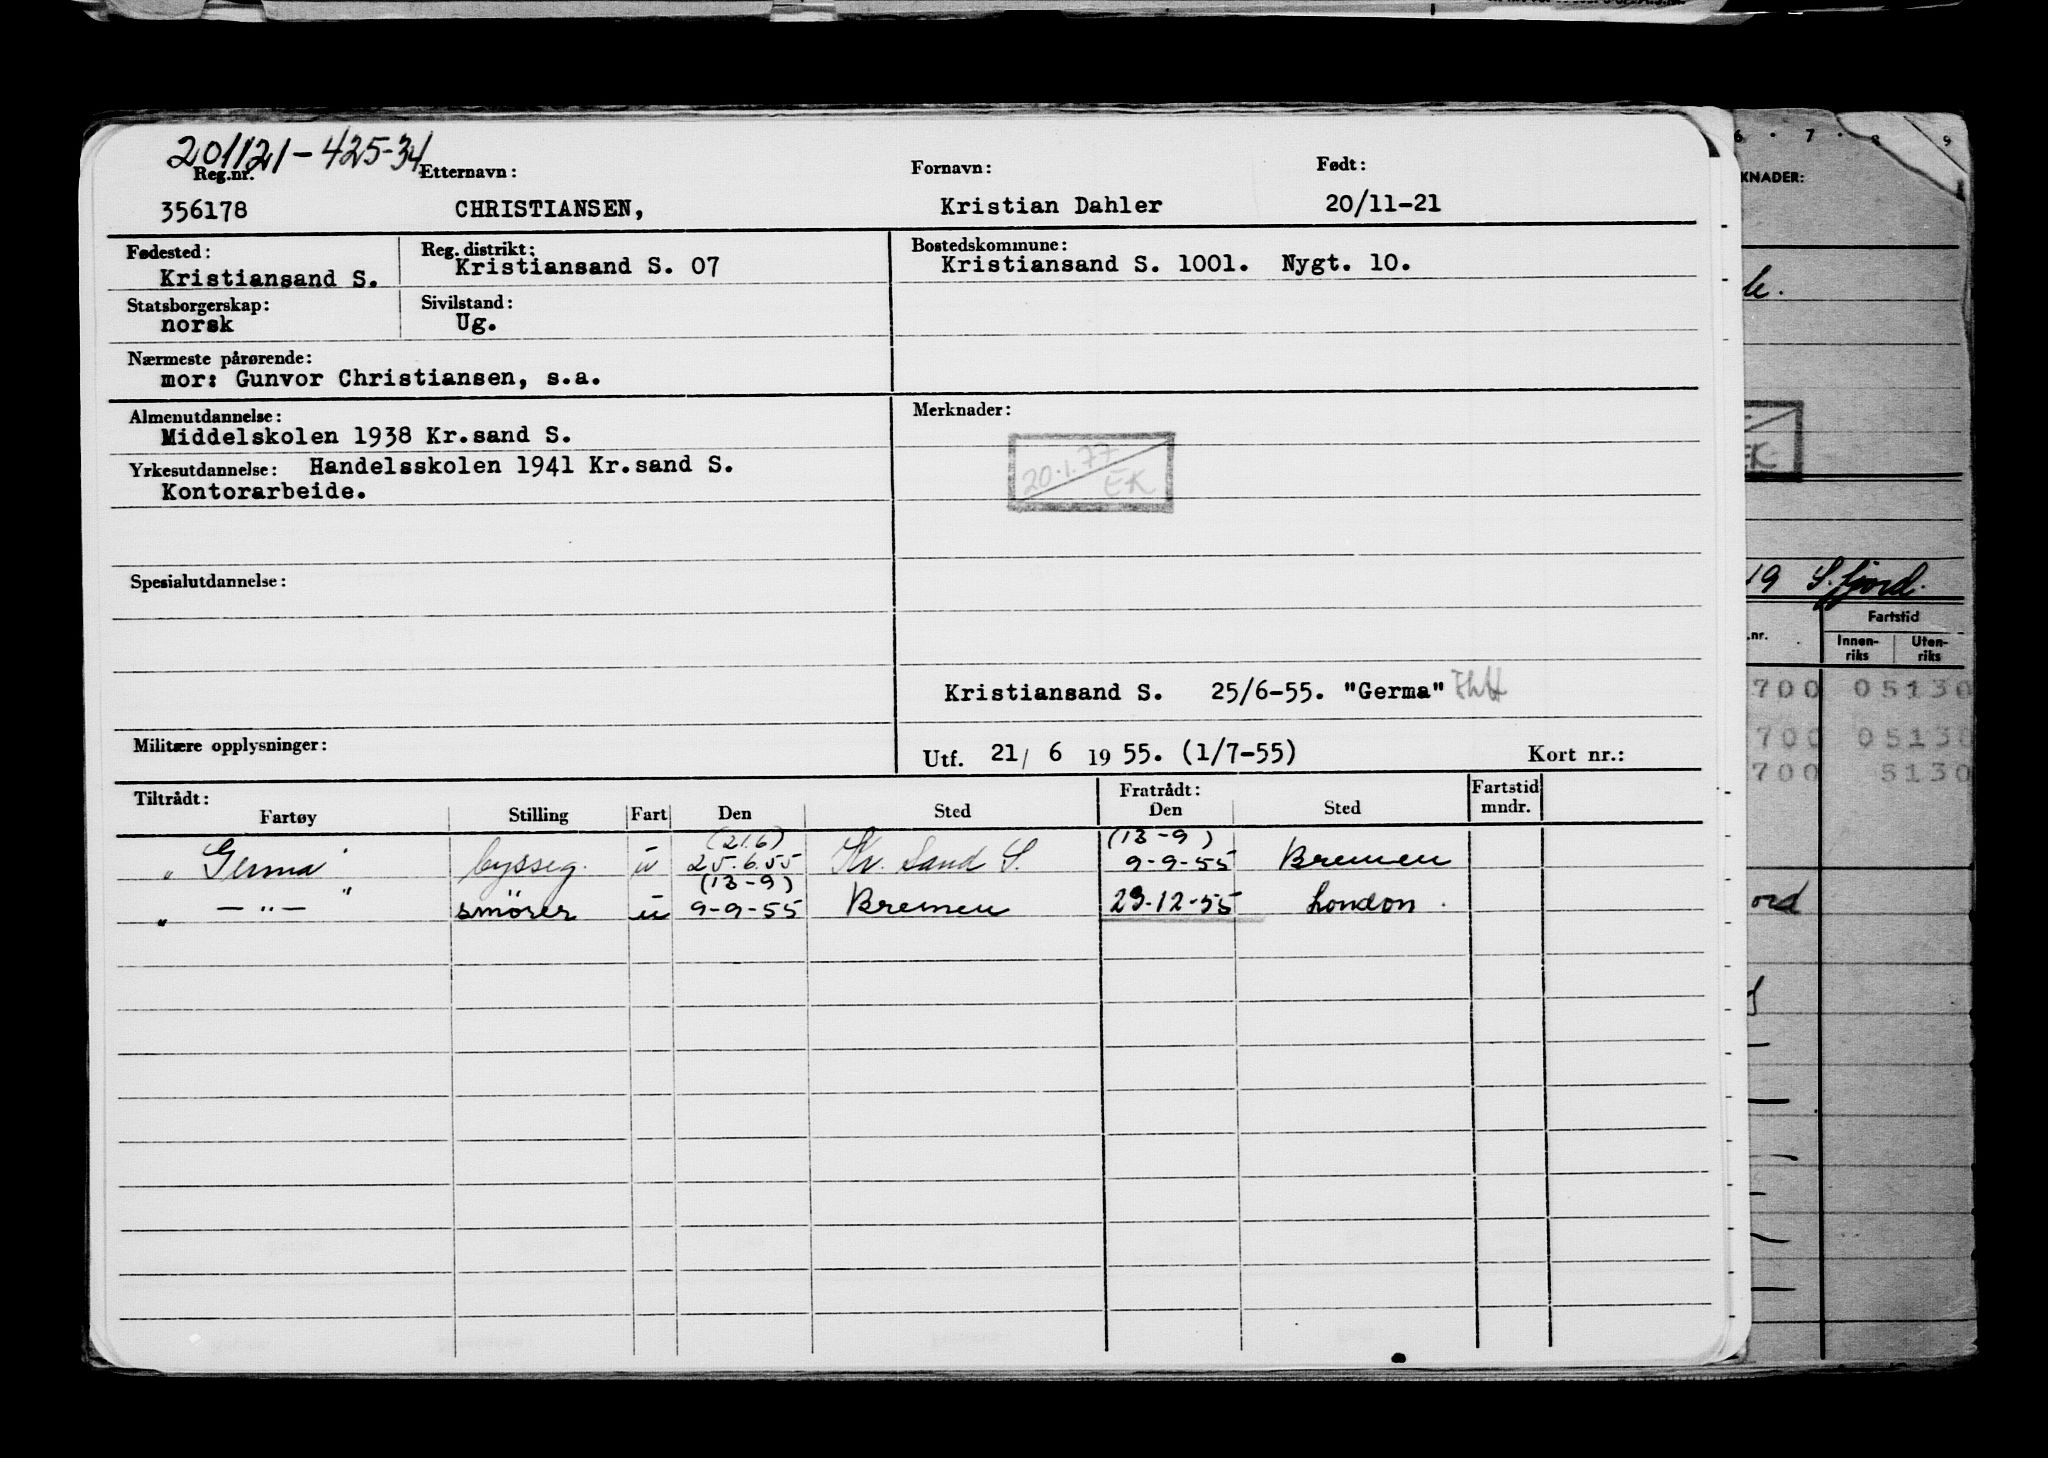 201121-425-34
Reg.nr. Etternavn: Fornavn: Født:
356178 CHRISTIANSEN, Kristian Dahler 20/11-21
Fødested: Reg. distrikt: Bostedskommune:
Kristiansand S. Kristiansand S. 07 Kristiansand S. 1001. Nygt. 10.
Statsborgerskap: Sivilstand:
norsk Ug.
Nærmeste pårørende:
mor: Gunvor Christiansen, s.a.
Almenutdannelse: Merknader:
Middelskolen 1938 Kr.sand S.
Yrkesutdannelse: Handelsskolen 1941 Kr.sand S.
Kontorarbeide.
20.1.77
EK
Spesialutdannelse:
Kristiansand S. 25/6-55. "Germa"
Militære opplysninger: Utf. 21/ 6 19 55. (1/7-55) Kort nr.:
Tiltrådt: Fratrådt: Fartstid
Fartøy Stilling Fart Den Sted Den Sted mndr.
(21.6) (13-9)
"Germa" bysseg. u 25.6.55 Kr. Sand S. 9-9-55 Bremen
(13-9)
" — " — " smører u 9-9-55 Bremen 29-12-55 London.
6 · 7 · 8 9
KNADER:
le.
EK
19 S.fjord.
.nr. Fartstid
Innen-
riks
Uten-
riks
700 05130
700 05130
700 5130
ord